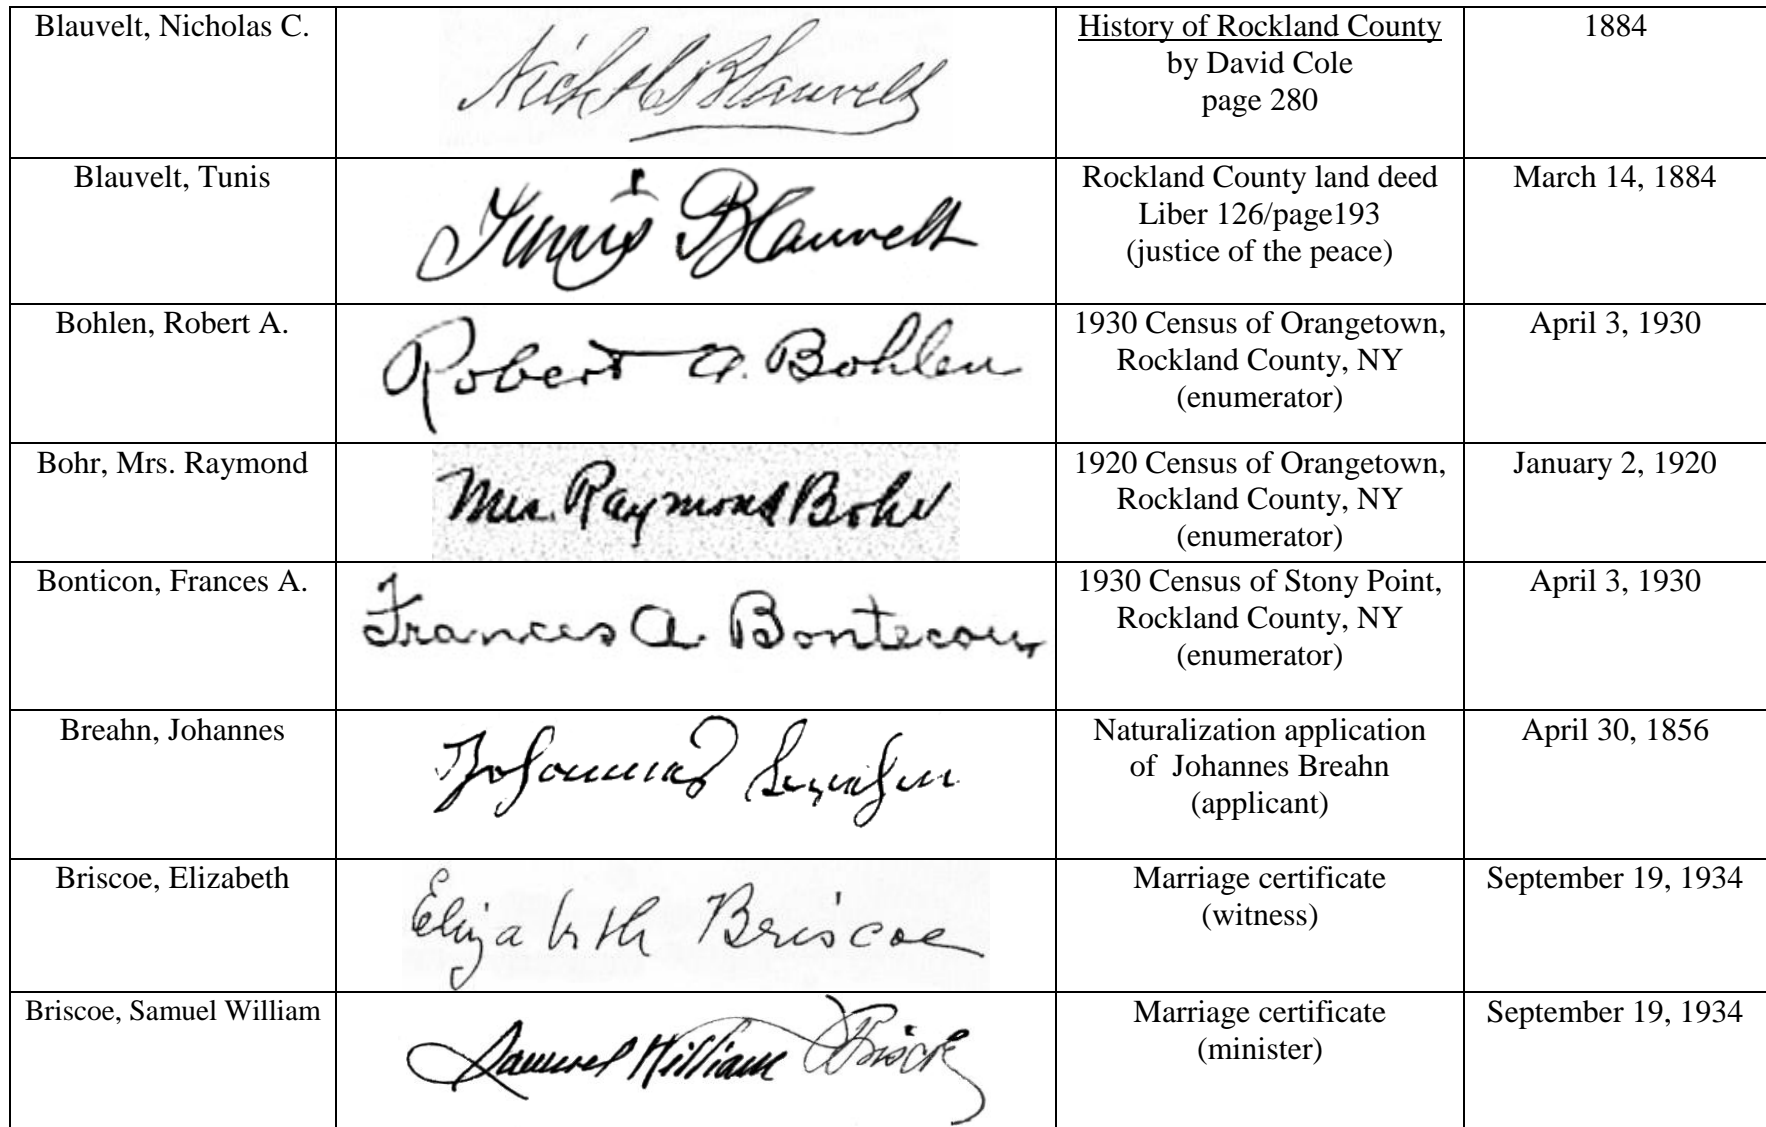 Blauvelt, Nicholas C.
Nichs C Blauvelt
History of Rockland County
by David Cole
page 280
1884
Blauvelt, Tunis
Tunis Blauvelt
Rockland County land deed
Liber 126/page193
(justice of the peace)
March 14, 1884
Bohlen, Robert A.
Robert A. Bohlen
1930 Census of Orangetown,
Rockland County, NY
(enumerator)
April 3, 1930
Bohr, Mrs. Raymond
Mrs. Raymond Bohr
1920 Census of Orangetown,
Rockland County, NY
(enumerator)
January 2, 1920
Bonticon, Frances A.
Frances A. Bontecou
1930 Census of Stony Point,
Rockland County, NY
(enumerator)
April 3, 1930
Breahn, Johannes
Johannes
Naturalization application
of Johannes Breahn
(applicant)
April 30, 1856
Briscoe, Elizabeth
Elizabeth Briscoe
Marriage certificate
(witness)
September 19, 1934
Briscoe, Samuel William
Samuel William Briscoe
Marriage certificate
(minister)
September 19, 1934